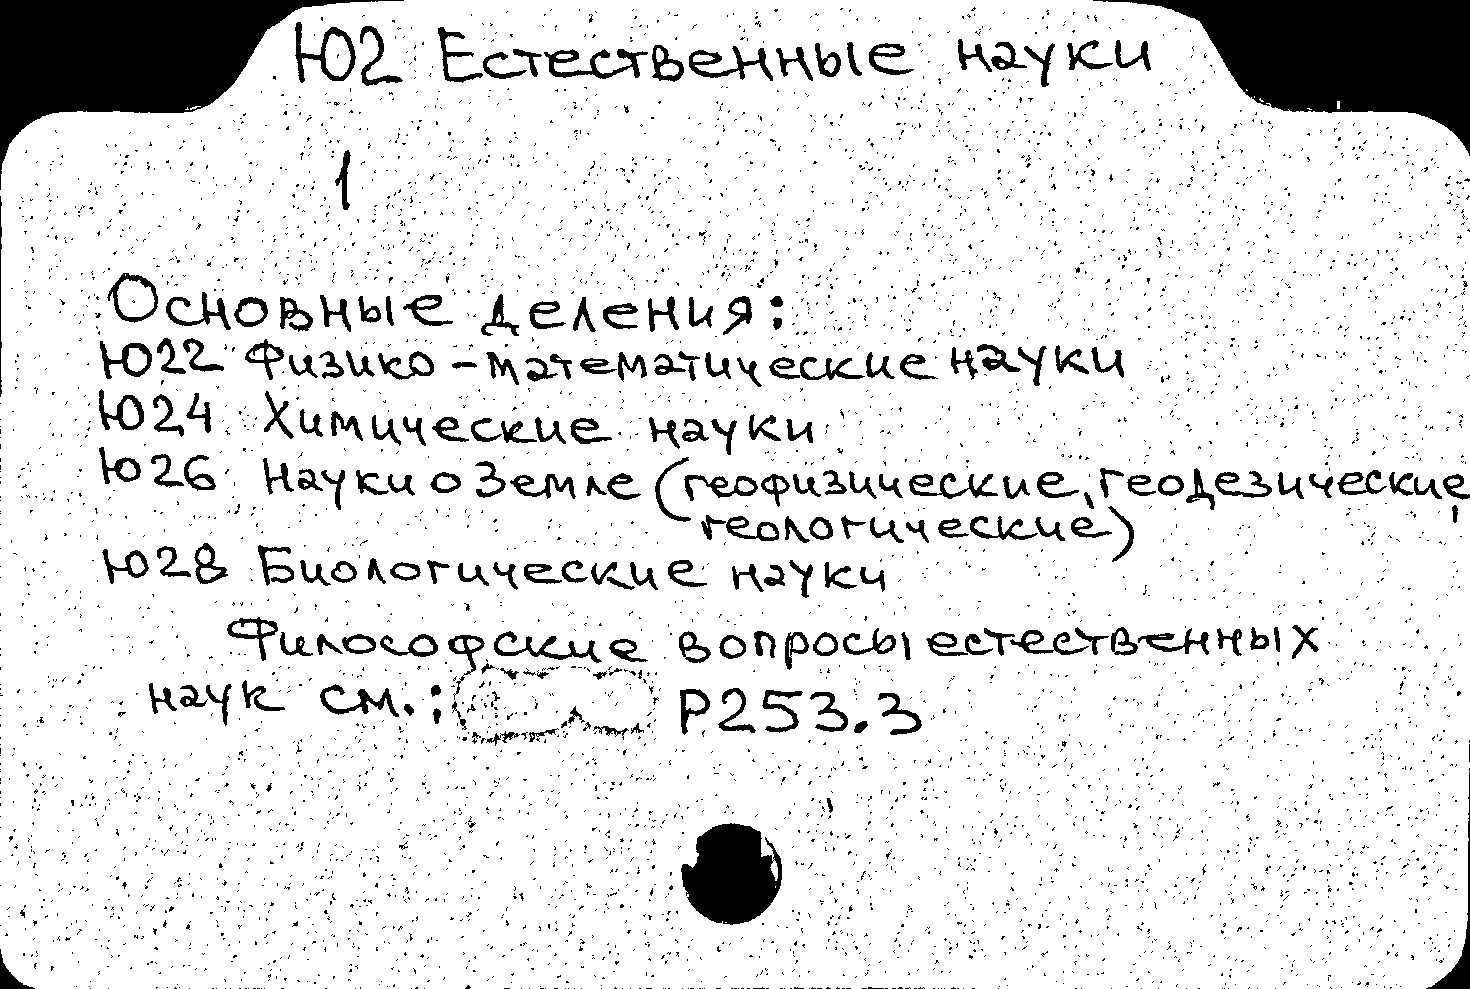 Ю2 Естественные науки
1
Основные деления:
Ю22 Физико-математические науки
Ю24 Химические науки
Ю26 Науки о Земле (геофизические, геодезические,
геологические)
Ю28 Биологические науки
Философские вопросы естественных
наук см.: Р253.3